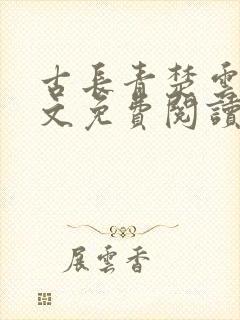 古長青楚雲
文免費閱讀
展雲香